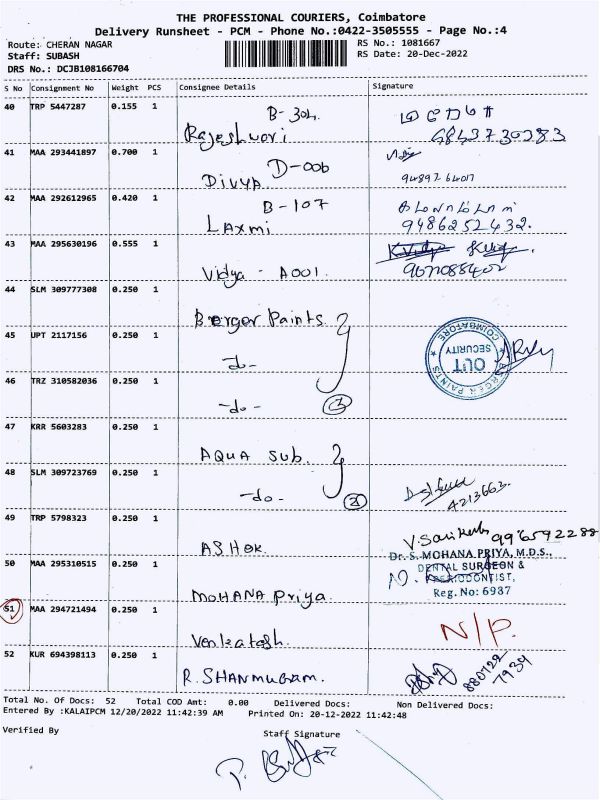 THE PROFESSIONAL COURIERS, Coimbatore
Delivery Runsheet - PCM - Phone No.:0422-3505555 - Page No.:4
Route: CHERAN NAGAR
Staff: SUBASH
DRS No.: DCJB108166704
RS No.: 1081667
RS Date: 20-Dec-2022
S No Consignment No Weight PCS Consignee Details Signature
40 TRP 5447287 0.155 1 B-304
Rajeshwari
41 MAA 293441897 0.700 1 D-006
Divya
42 MAA 292612965 0.420 1 B-107
Laxmi 9486252432.
43 MAA 295630196 0.555 1
Vidya - A001. K.Vidya
44 SLM 309777308 0.250 1
Berger Paints
45 UPT 2117156 0.250 1
-do-
46 TRZ 310582036 0.250 1
-do- 3
COIMBATORE
SECURITY
OUT
BERGER PAINTS
47 KRR 5603283 0.250 1
AQUA Sub.
48 SLM 309723769 0.250 1
-do- 2
4213663.
49 TRP 5798323 0.250 1
ASHOK.
50 MAA 295310515 0.250 1
MOHANA Priya.
Dr. S. MOHANA PRIYA, M.D.S.,
DENTAL SURGEON &
PERIODONTIST,
Reg. No: 6987
51 MAA 294721494 0.250 1
Venkatesh. N/P.
52 KUR 694398113 0.250 1
R. SHANMUGAM.
880722
7934
Total No. Of Docs: 52 Total COD Amt: 0.00 Delivered Docs: Non Delivered Docs:
Entered By :KALAIPCM 12/20/2022 11:42:39 AM Printed On: 20-12-2022 11:42:48
Verified By Staff Signature